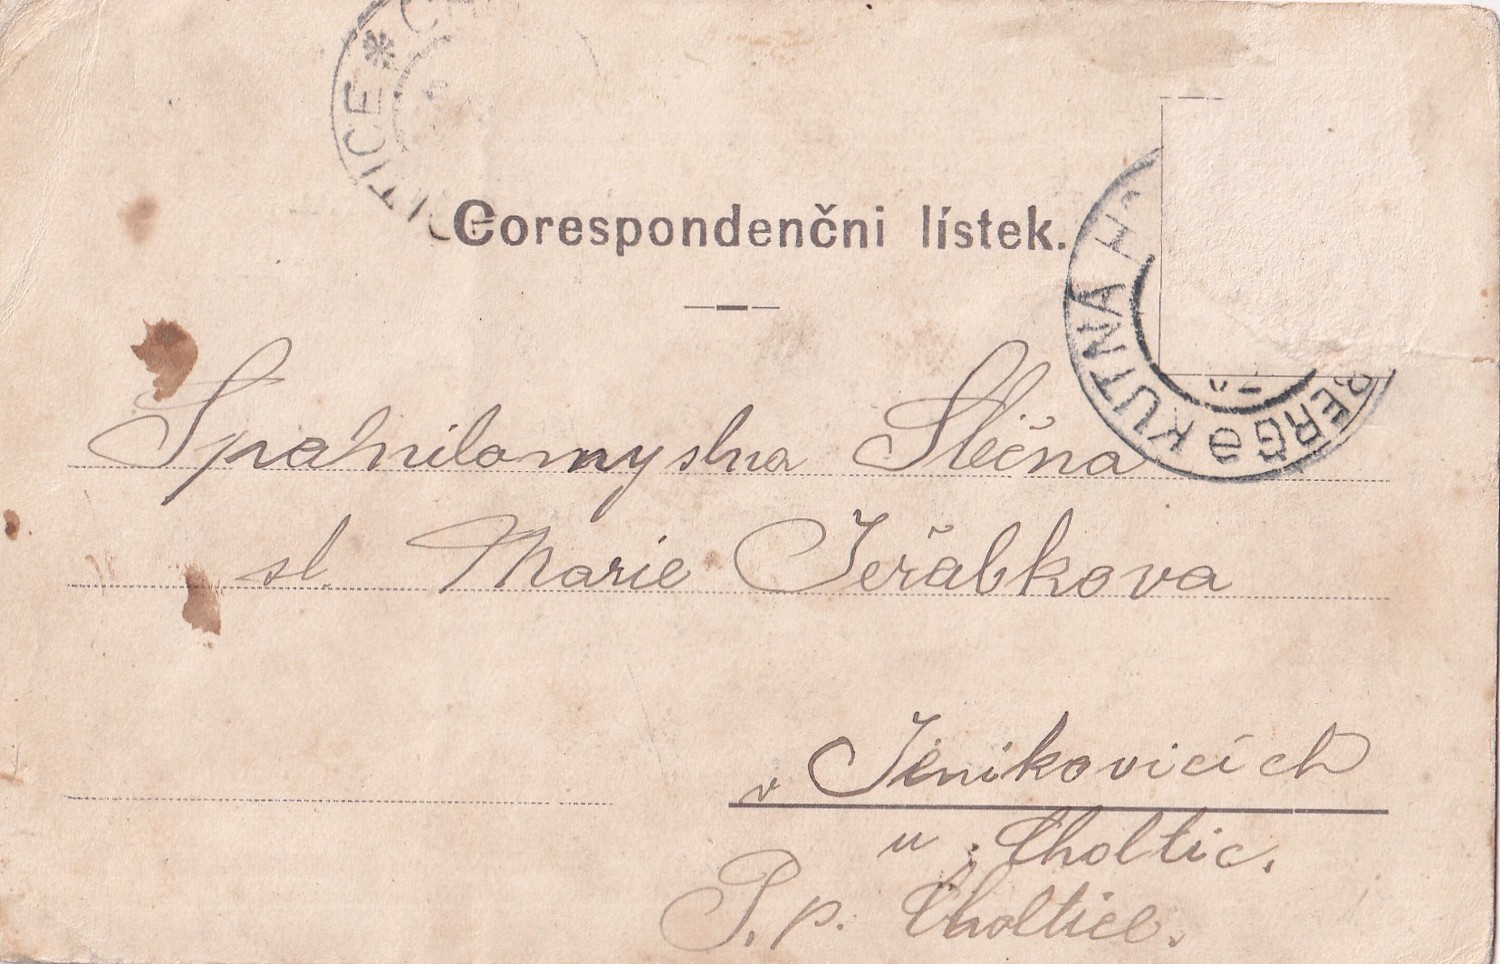 CH
TICE *
Corespondenčni lístek.
KUTNÁ H
BERG
Spanilomyslna Slečna
sl. Marie Jeřábkova
v Jenikovicích
u Choltic.
P. p. Choltice.